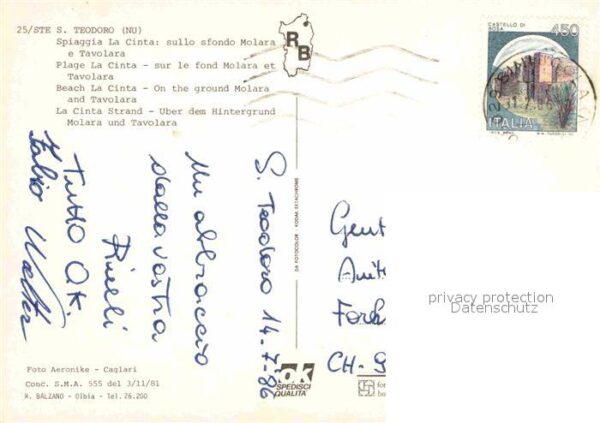 25/STE S. TEODORO (NU)
Spiaggia La Cinta: sullo sfondo Molara
e Tavolara
Plage La Cinta - sur le fond Molara et
Tavolara
Beach La Cinta - On the ground Molara
and Tavolara
La Cinta Strand - Uber dem Hintergrund
Molara und Tavolara
R B
CASTELLO DI
BOSA
450
ITALIA
S. Teodoro 14-7-86
Un abbraccio
dalla vostra
Tutto OK.
Fabio Walter
DA FOTOCOLOR KODAK EKTACHROME
Gent
Anit
CH-9
privacy protection
Datenschutz
Foto Aeronike - Cagliari
Conc. S.M.A. 555 del 3/11/81
R. BALZANO - Olbia - Tel. 26.200
OK
SPEDISCI
QUALITA'